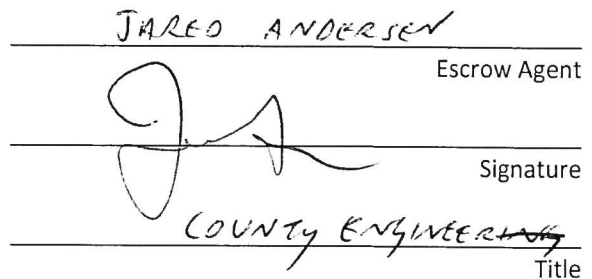 JARED ANDERSEN
Escrow Agent
Signature
COUNTY ENGINEERING
Title